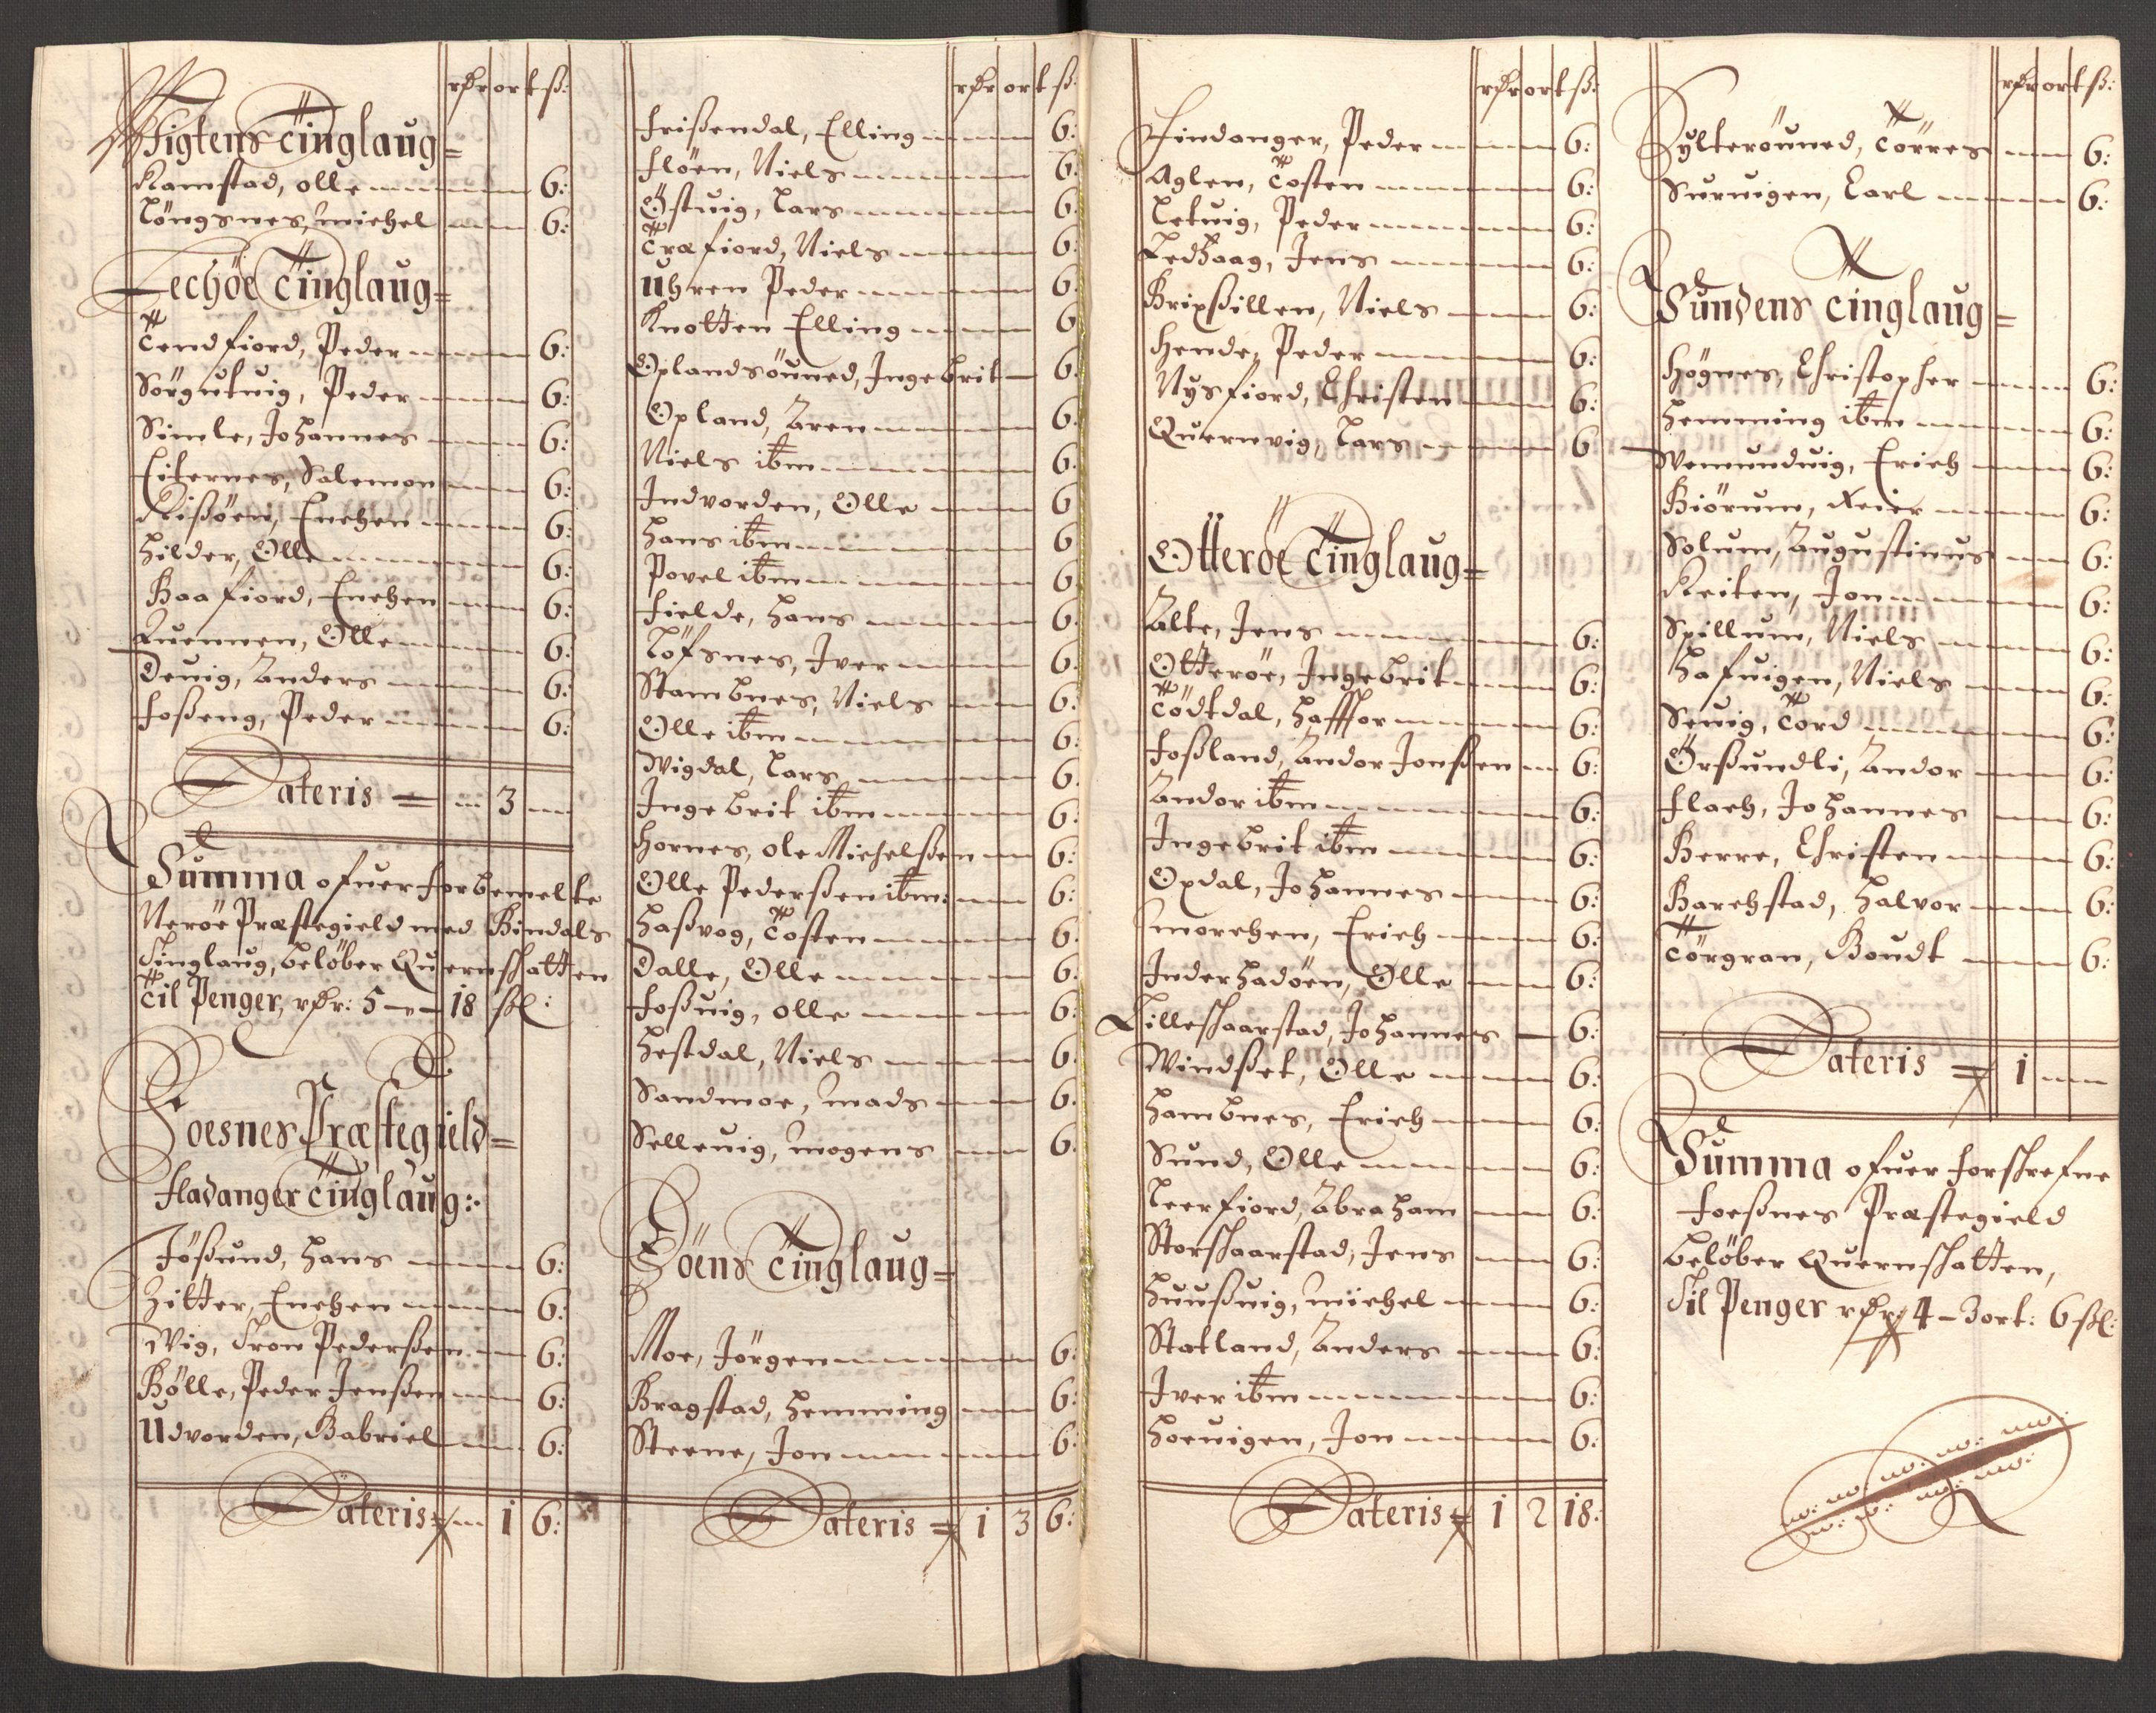 rdr ort ß:
Wigtens Tinglaug=
Ramstad, olle 6:
Löngsnes, michel 6:
Lechöe Tinglaug=
Tendfiord, Peder 6:
Sörgutvig, Peder 6:
Simle, Johannes 6:
Eiternes, Salemon 6:
Risöen, Enchen 6:
Hilder, Olle 6:
Baafiord, Enchen 6:
Quennen, Olle 6:
Devig, Anders 6:
Foßeng, Peder 6:
Lateris = 3
Summa ofuer forbemelte
Neröe Præstegield med Bindals
Tinglaug, belöber Quernschatten
Til Penger, rdr: 5 – – 18 ßl:
Foesnes Præstegield=
Fladanger Tinglaug:
Jößund, Hans 6:
Zitter, Enchen 6:
Wig, Tron Pederßen 6:
Bölle, Peder Jenßen 6:
Udvorden, Gabriel 6:
Lateris = 1 6:
rdr ort ß:
Frißendal, Elling 6:
Flöen, Niels 6:
Östvig, Lars 6:
Træfiord, Niels 6:
Uhren Peder 6:
Knotten Elling 6
Oplandsöuned, Ingebrit 6:
Opland, Aren 6:
Niels ibm 6:
Indvorden, Olle 6
Hans ibm 6
Povel ibm 6
Fielde, Hans 6.
Löfsnes, Iver 6.
Stambnes, Niels 6:
Olle ibm 6:
Wigdal, Lars 6.
Ingebrit ibm 6:
Hornes, ole Michelßen 6:
Olle Pederßen ibm: 6:
Haßvog, Tosten 6.
Dalle, Olle 6:
Foßvig, olle 6:
Hestdal, Niels 6.
Sandmoe, mads 6.
Sellevig, mogens 6.
Söens Tinglaug=
Moe, Jörgen 6:
Bragstad, Hemming 6:
Steene, Jon 6:
Lateris = 1 3 6:
rdr ort ß:
Findanger, Peder 6:
Aglen, Tosten 6:
Letvig, Peder 6:
Ledhaag, Jens 6:
Brixstillen, Niels 6:
Hende, Peder 6:
Nysfiord, Christen 6:
Quernvig, Lars 6
Otteröe Tinglaug=
Alte, Jens 6:
Otteröe, Ingebrit 6:
Tödtdal, Haffor 6:
Foßland, Andor Jonßen 6:
Andor ibm 6:
Ingebrit ibm 6:
Opdal, Johannes 6:
Smorchen, Erich 6:
Inderhadöen, Olle 6:
Lilleschaarstad, Johannes 6:
Windset, Olle 6:
Hambnes, Erich 6:
Sund, Olle 6:
Leerfiord, Abraham 6:
Storschaarstad, Jens 6:
Huusvig, michel 6:
Statland, Anders 6:
Iver ibm 6:
Hoevigen, Jon 6:
Lateris = 1 2 18:
rdr ort ß:
Sylteröuned, Törres 6:
Survigen, Carl 6:
Sundens Tinglaug=
Högnes, Christopher 6:
Hemming ibm 6:
Wemundvig, Erich 6:
Biörum, Reier 6:
Solum, Augustinus 6:
Reiten, Jon 6:
Spillum, Niels 6:
Hafvigen, Niels 6:
Sevig, Tord 6:
Örsundli, Andor 6:
Flach, Johannes 6:
Berre, Christen 6:
Barchstad, Halvor 6:
Törgran, Boudt 6:
Lateris = 1
Summa ofuer forschrefne
Foeßnes Præstegield
belöber Quernschatten,
Til Penger rdr: 4 – 3 ort: 6 ßl: